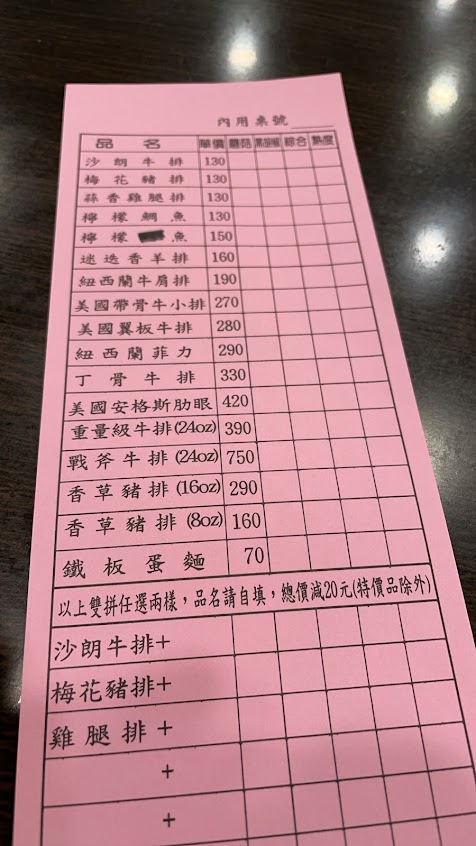 內用桌號
品名 單價 蘑菇 黑胡椒 綜合 熟度
沙朗牛排 130
梅花豬排 130
蒜香雞腿排 130
檸檬鯛魚 130
檸檬魚 150
迷迭香羊排 160
紐西蘭牛肩排 190
美國帶骨牛小排 270
美國翼板牛排 280
紐西蘭菲力 290
丁骨牛排 330
美國安格斯肋眼 420
重量級牛排(24oz) 390
戰斧牛排(24oz) 750
香草豬排(16oz) 290
香草豬排(8oz) 160
鐵板蛋麵 70
以上雙拼任選兩樣，品名請自填，總價減20元(特價品除外)
沙朗牛排+
梅花豬排+
雞腿排+
+
+